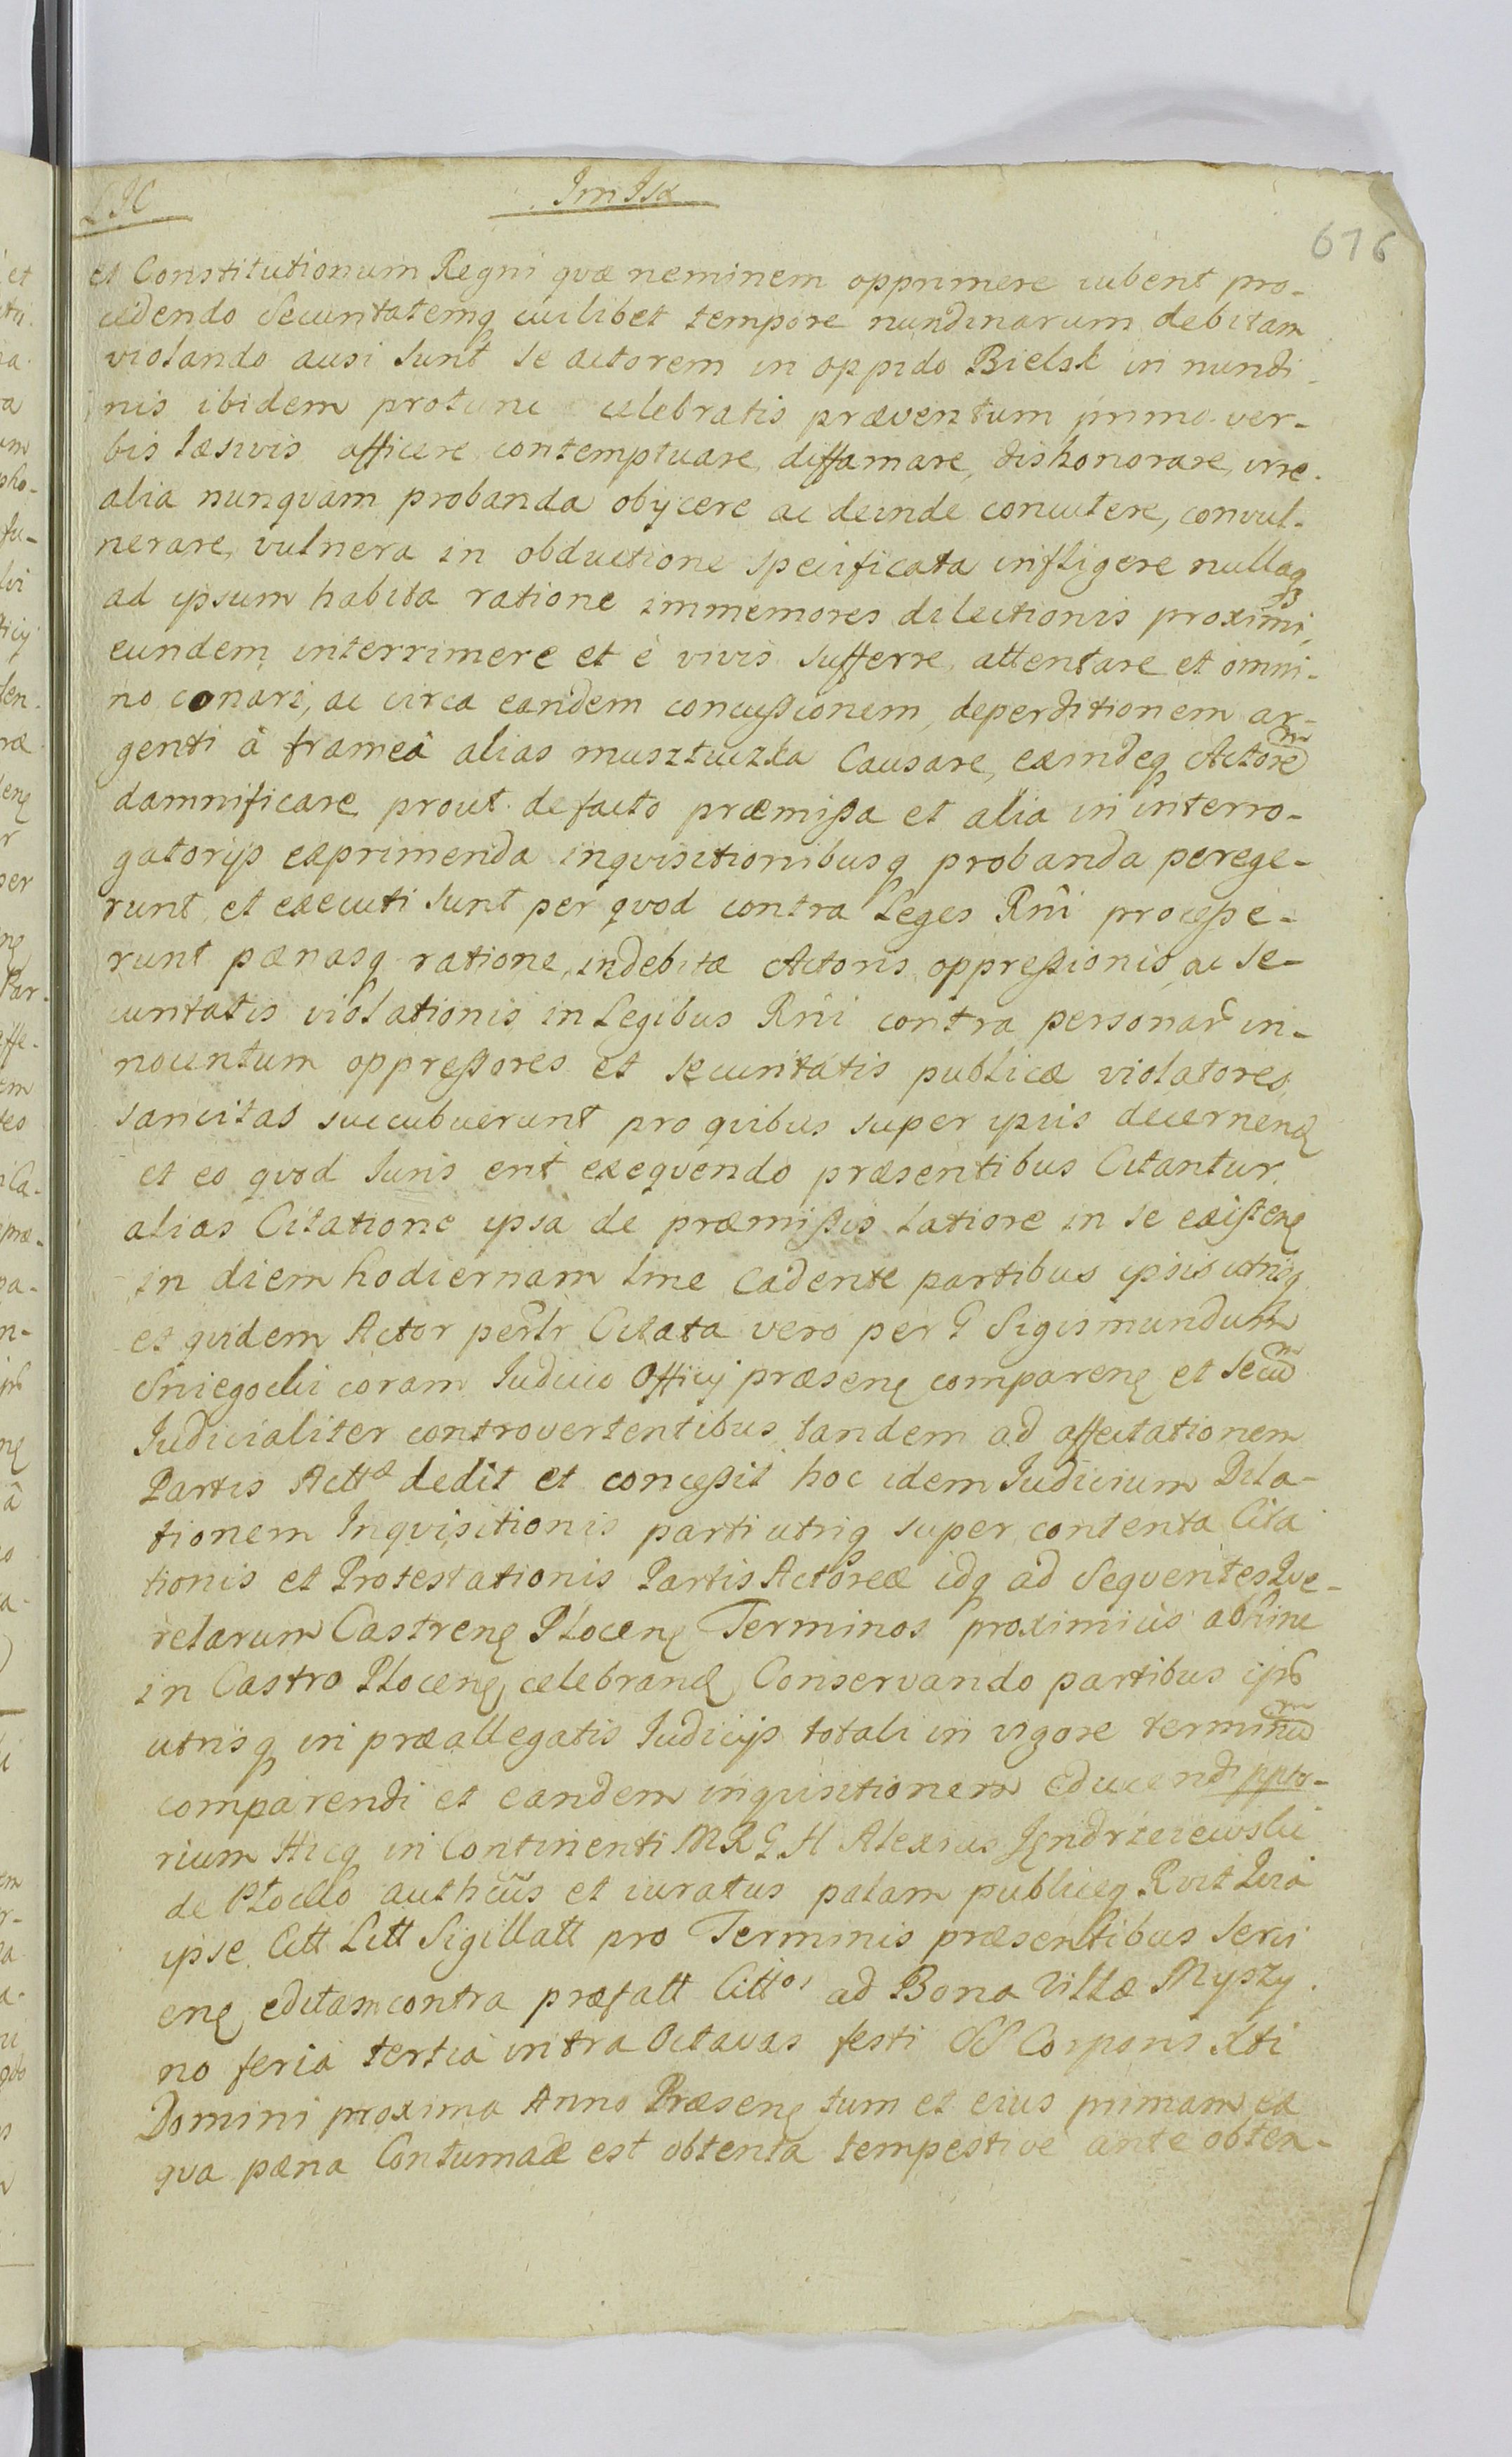 676
et Constitutionum Regni quæ neminem opprimere iubent pro-
cedendo Securitatemq cuilibet tempore nundinarum debitam
violando ausi sunt se actorem in oppido Bielsk in nundi-
nis ibidem protunc celebratis præventum primo ver-
bis læsivis afficere contemptuare, diffamare, dishonorare, irre-
alia nunquam probanda obijcere ac deinde concutere, convul-
nerare, vulnera in obductione specificata infligere nullaq
ad ipsum habita ratione immemores dilectionis proximi,
eundem interrimere et è vivis sufferre, attentare et omni-
no conari, ac circa eandem concussionem, deperditionem ar-
genti â frameâ alias musztuczka Causare, eamdeq Actorem
damnificare prout de facto præmissa et alia in interro-
gatorijs exprimenda inquisitionibusq probanda perege-
runt et executi sunt per quod contra Leges Rñi processe-
runt pænasq ratione, indebitæ Actoris oppressionis, ac se-
curitatis violationis in Legibus Rñi contra personar in-
nocentum oppressores et securitatis publicæ violatores
sancitas succubuerunt pro quibus super ipsis decernen
et eo quod Iuris erit exequendo præsentibus Citantur.
alias Citatione ipsa de præmissis latiore in se existen
in diem hodiernam lme Cadente partibus ipsis utrisq
et quidem Actor perlr Citata vero per G Sigismundum
Sniegocki coram Iudicio Officij præsen comparen et secum
Iudicialiter controvertentibus tandem ad affectationem
Partis Actt dedit et concessit hoc idem Iudicium Dila-
tionem Inquisitionis parti utriq super contenta Cita
tionis et Protestationis Partis Actoreæ idq ad Sequentes Que-
relarum Castren Plocen Terminos proximiùs abhinc
in Castro Plocen celebran Conservando partibus ips
utrisq in præallegatis Iudicijs totali in vigore terminum
comparendi et eandem inquisitionem educendi ppto-
rium Hicq in Continenti M R G H Alexius Jędrzeiewski
de Plocko authcus et iuratus palam publiceq Rvit Quia
ipse Citt Litt Sigillatt pro Terminis præsentibus servi
en editam contra præfatt Citt ad Bona Villæ Myszy-
no feria tertia intra Octavas festi SS Corporis Xti
Domini proxima Anno Præsen tum et eius primam ea
qua pæna Contumaciæ est obtenta tempestive ante obten-